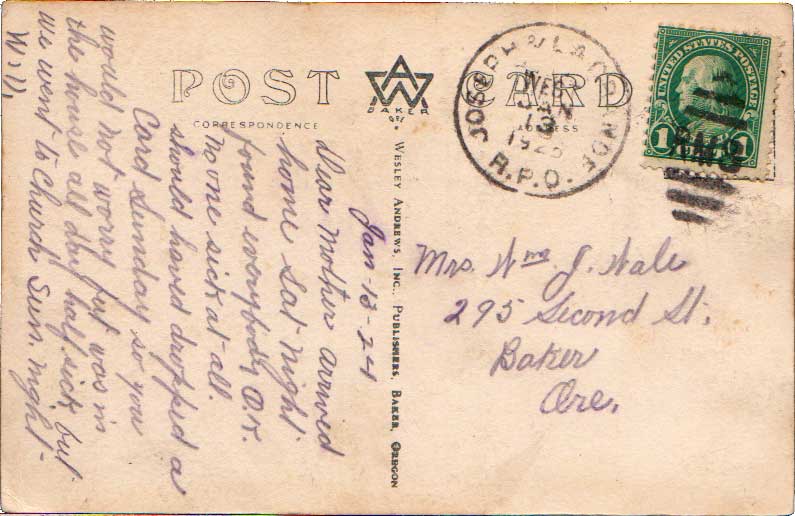 POST CARD
AW
BAKER
CORRESPONDENCE
ADDRESS
JOSEPH & LA GRANDE
WED
JAN
R.P.O.
UNITED STATES POSTAGE
1 1
RMS
WESLEY ANDREWS, INC., PUBLISHERS, BAKER, OREGON
Jan-13-24
Dear Mother arrived
home Sat-night
found everybody O.K.
no one sick at all.
should have dropped a
Card Sunday so you
would not worry but was in
the house all day half sick but
we went to Church Sun. night-
Will
Mrs. Wm. J. Wale
295 Second St.
Baker
Ore.